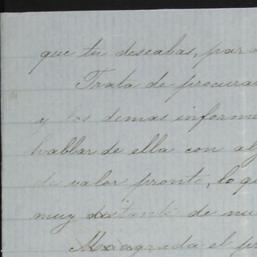 que tu deseabas, par
Trata de procura
y los demas inform
hablar de ella con al
de valor pronto, lo q
muy distante de nu
el pr